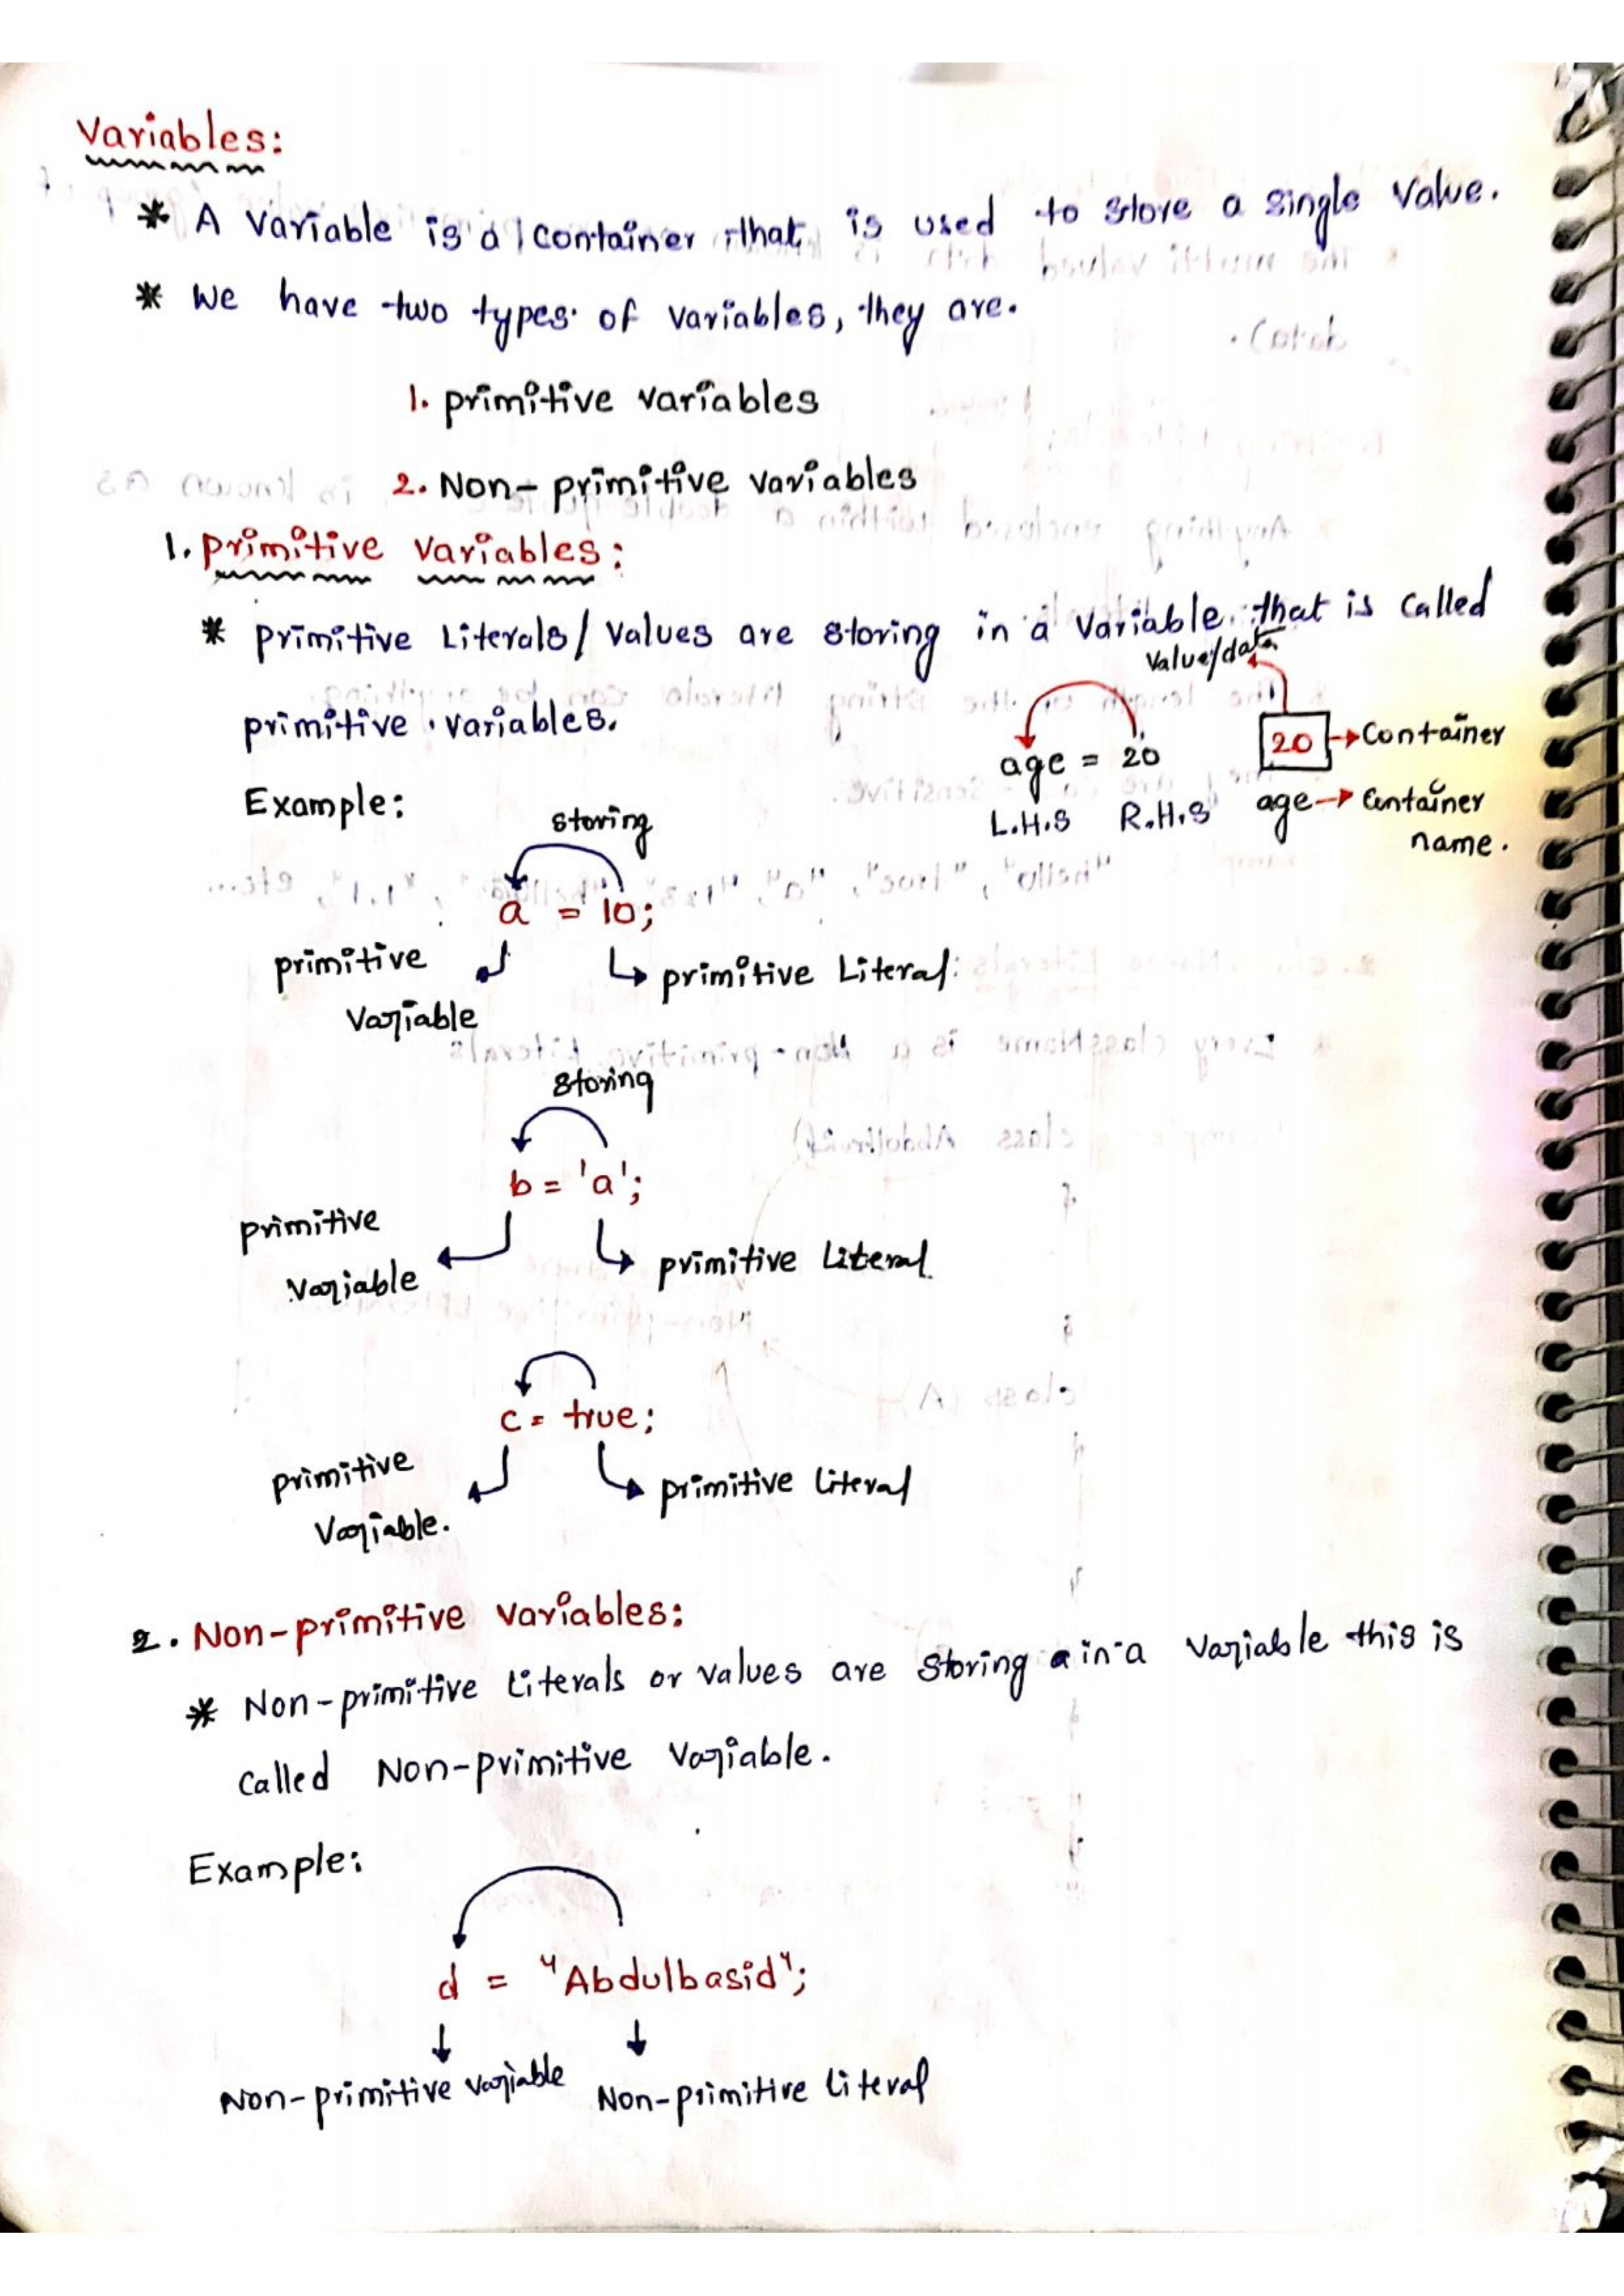 Variables:
* A Variable is a container that is used to store a single value.
* We have two types of variables, they are.
1. primitive variables
2. Non-primitive variables
1. primitive variables:
* primitive Literals/values are storing in a variable that is called
primitive variables.
value/data
20 → Container
age = 20
L.H.S R.H.S
age → Container
name.
Example:
storing
a = 10;
primitive
Variable
primitive Literal
storing
b = 'a';
primitive
variable
primitive Literal
c = true;
primitive
Variable.
primitive literal
2. Non-primitive variables:
* Non-primitive Literals or values are storing in a variable this is
called Non-primitive Variable.
Example:
d = "Abdulbasid";
Non-primitive variable Non-primitive literal